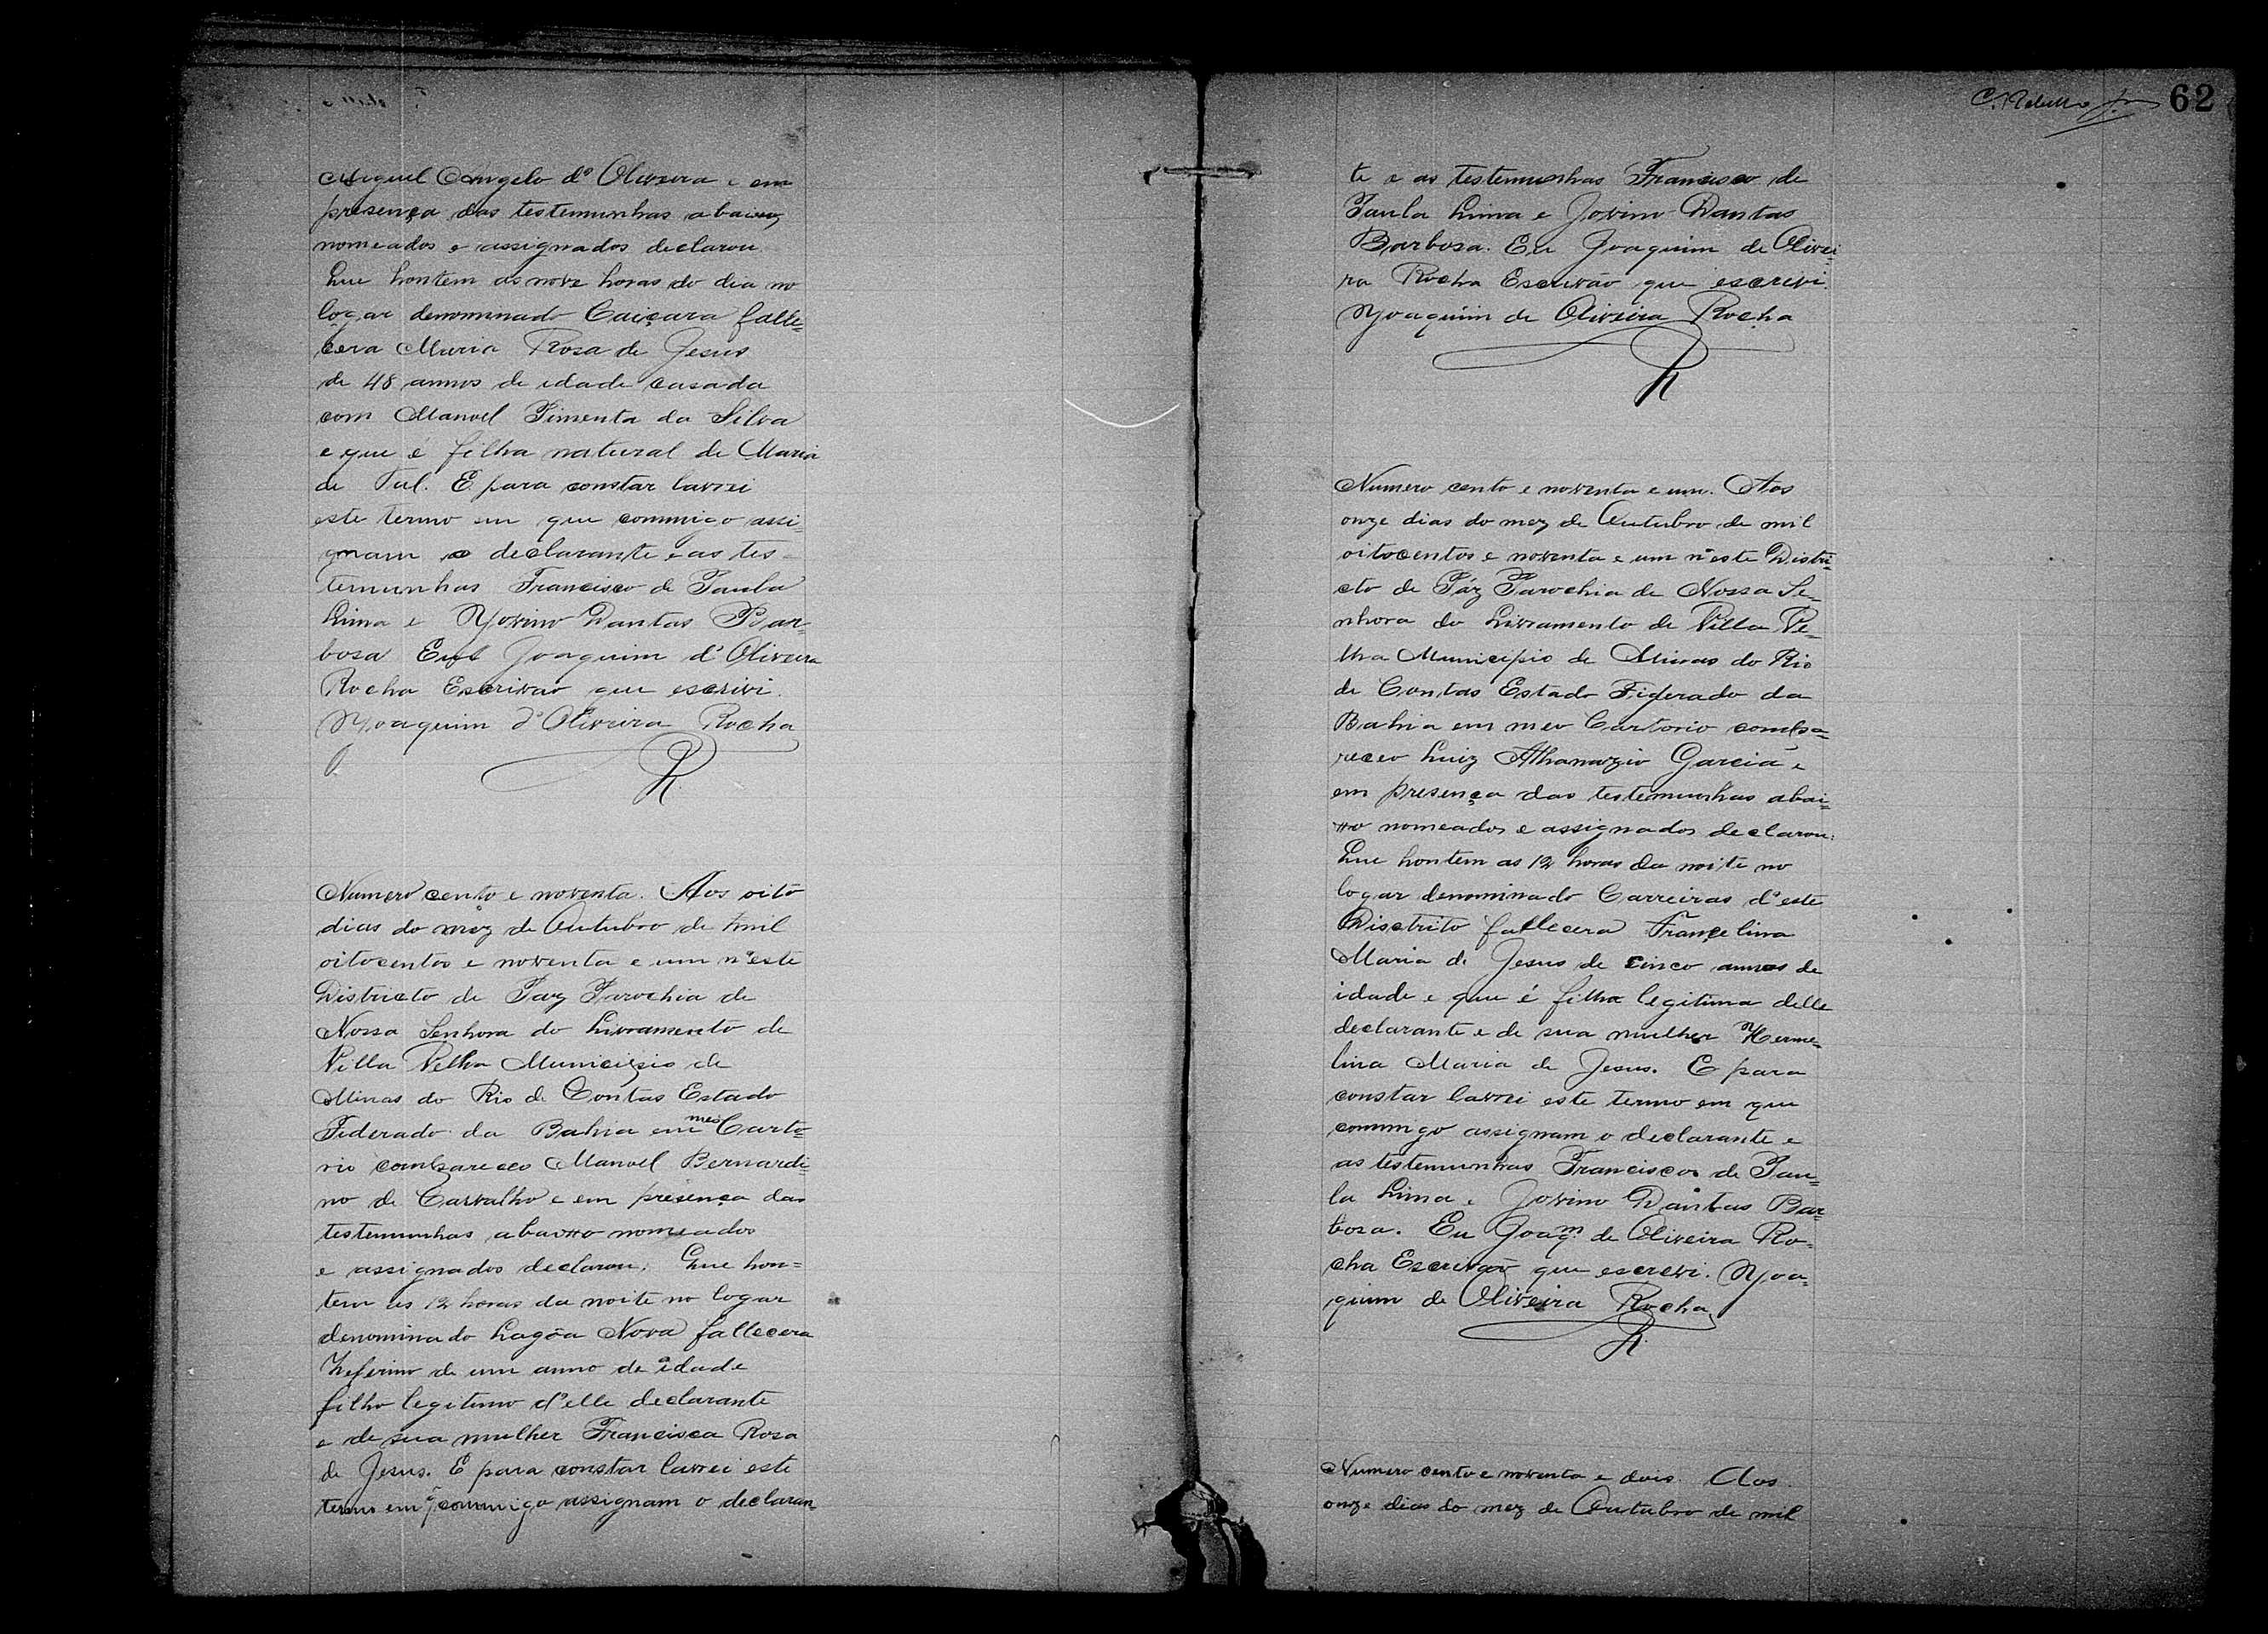 Miguel Angelo d'Oliveira e em
presença das testemunhas abaixo
nomeados e assignados declarou
Que hontem as nove horas do dia no
logar denominado Caiçara falle=
cera Maria Rosa de Jesus
de 48 annos de idade casada
com Manoel Pimenta da Silva
e que é filha natural de Maria
de Tal. E para constar lavrei
este termo em que commigo assi=
gnam o declarante e as tes=
temunhas Francisco de Paula
Lima e Jovino Dantas Bar=
bosa Eu Joaquim d'Oliveira
Rocha Escrivão que escrivi.
Joaquim d'Oliveira Rocha
R.
Numero cento e noventa. Aos oito
dias do mez de Outubro de mil
oitocentos e noventa e um n'este
Districto de Paz Parochia de
Nossa Senhora do Livramento de
Villa Velha Municipio de
Minas do Rio de Contas Estado
Federado da Bahia em meo Carto=
rio compareceo Manoel Bernardi=
no de Carvalho e em presença das
testemunhas abaixo nomeados
e assignados declarou: Que hon=
tem as 12 horas da noite no logar
denominado Lagôa Nova fallecera
Zeferino de um anno de idade
filho legitimo d'elle declarante
e de sua mulher Francisca Rosa
de Jesus. E para constar lavrei este
termo em q commigo assignam o declaran
62
te e as testemunhas Francisco de
Paula Lima e Jovino Dantas
Barbosa. Eu Joaquim de Olivei=
ra Rocha Escrivão que escrivi.
Joaquim de Oliveira Rocha
R
Numero cento e noventa e um. Aos
onze dias do mez de Outubro de mil
oitocentos e noventa e um n'este Distri=
cto de Páz Parochia de Nossa Se=
nhora do Livramento de Villa Ve=
lha Municipio de Minas do Rio
de Contas Estado Federado da
Bahia em meo Cartorio compa=
receo Luiz Athanazio Garcia e
em presença das testemunhas abai=
xo nomeados e assignados declarou:
Que hontem as 12 horas da noite no
logar denominado Carreiras d'este
Disctrito fallecera Françelina
Maria de Jesus de cinco annos de
idade e que é filha legitima delle
declarante e de sua mulher Herme=
lina Maria de Jesus. E para
constar lavrei este termo em que
commgo assignam o declarante e
as testemunhas Francisco de Pau=
la Lima e Jovino Dantas Bar=
bosa. Eu Joaqm. de Oliveira Ro=
cha Escrivão que escrevi. Joa=
quim de Oliveira Rocha
R.
Numero cento e noventa e dois. Aos
onze dias do mez de Outubro de mil